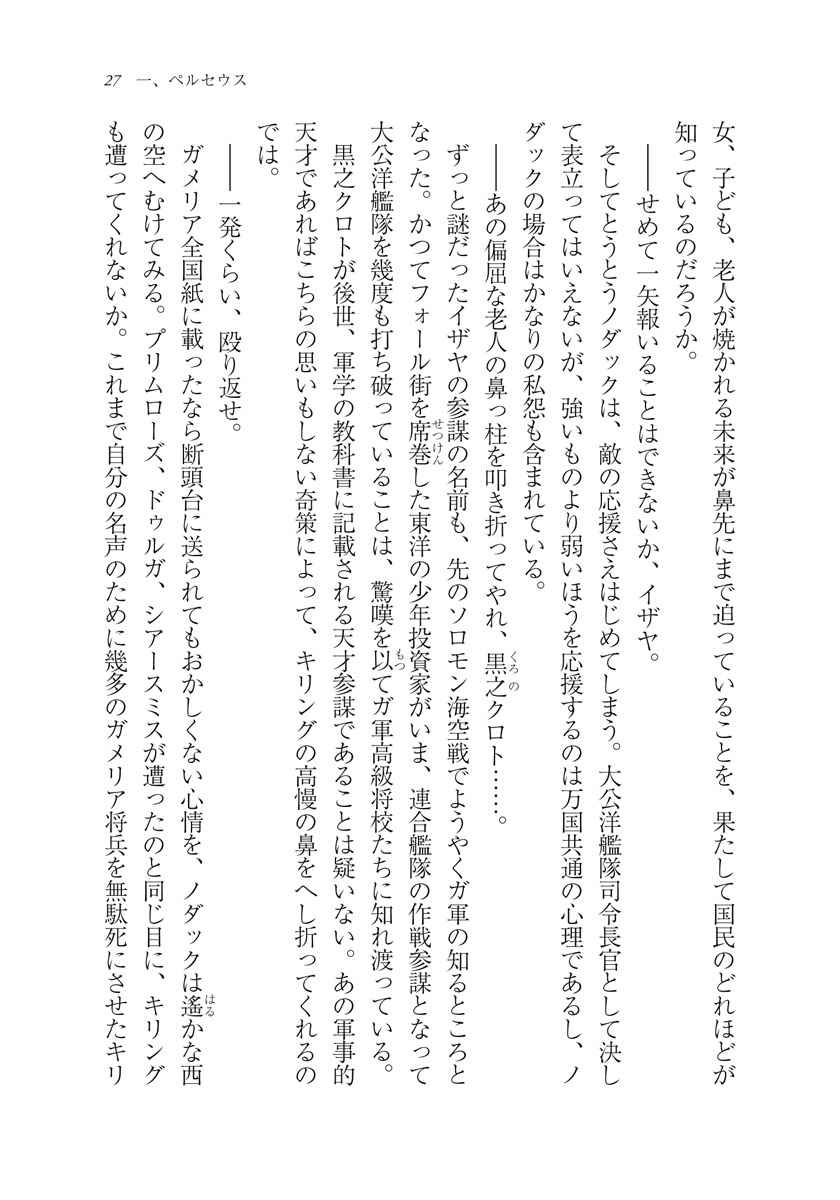 27　一、ペルセウス
女、子ども、老人が焼かれる未来が鼻先にまで迫っていることを、果たして国民のどれほどが
知っているのだろうか。
――せめて一矢報いることはできないか、イザヤ。
そしてとうとうノダックは、敵の応援さえはじめてしまう。大公洋艦隊司令長官として決し
て表立ってはいえないが、強いものより弱いほうを応援するのは万国共通の心理であるし、ノ
ダックの場合はかなりの私怨も含まれている。
――あの偏屈な老人の鼻っ柱を叩き折ってやれ、黒之クロト……。
ずっと謎だったイザヤの参謀の名前も、先のソロモン海空戦でようやくガ軍の知るところと
なった。かつてフォール街を席巻した東洋の少年投資家がいま、連合艦隊の作戦参謀となって
大公洋艦隊を幾度も打ち破っていることは、驚嘆を以てガ軍高級将校たちに知れ渡っている。
黒之クロトが後世、軍学の教科書に記載される天才参謀であることは疑いない。あの軍事的
天才であればこちらの思いもしない奇策によって、キリングの高慢の鼻をへし折ってくれるの
では。
――一発くらい、殴り返せ。
ガメリア全国紙に載ったなら断頭台に送られてもおかしくない心情を、ノダックは遙かな西
の空へむけてみる。プリムローズ、ドゥルガ、シアースミスが遭ったのと同じ目に、キリング
も遭ってくれないか。これまで自分の名声のために幾多のガメリア将兵を無駄死にさせたキリ